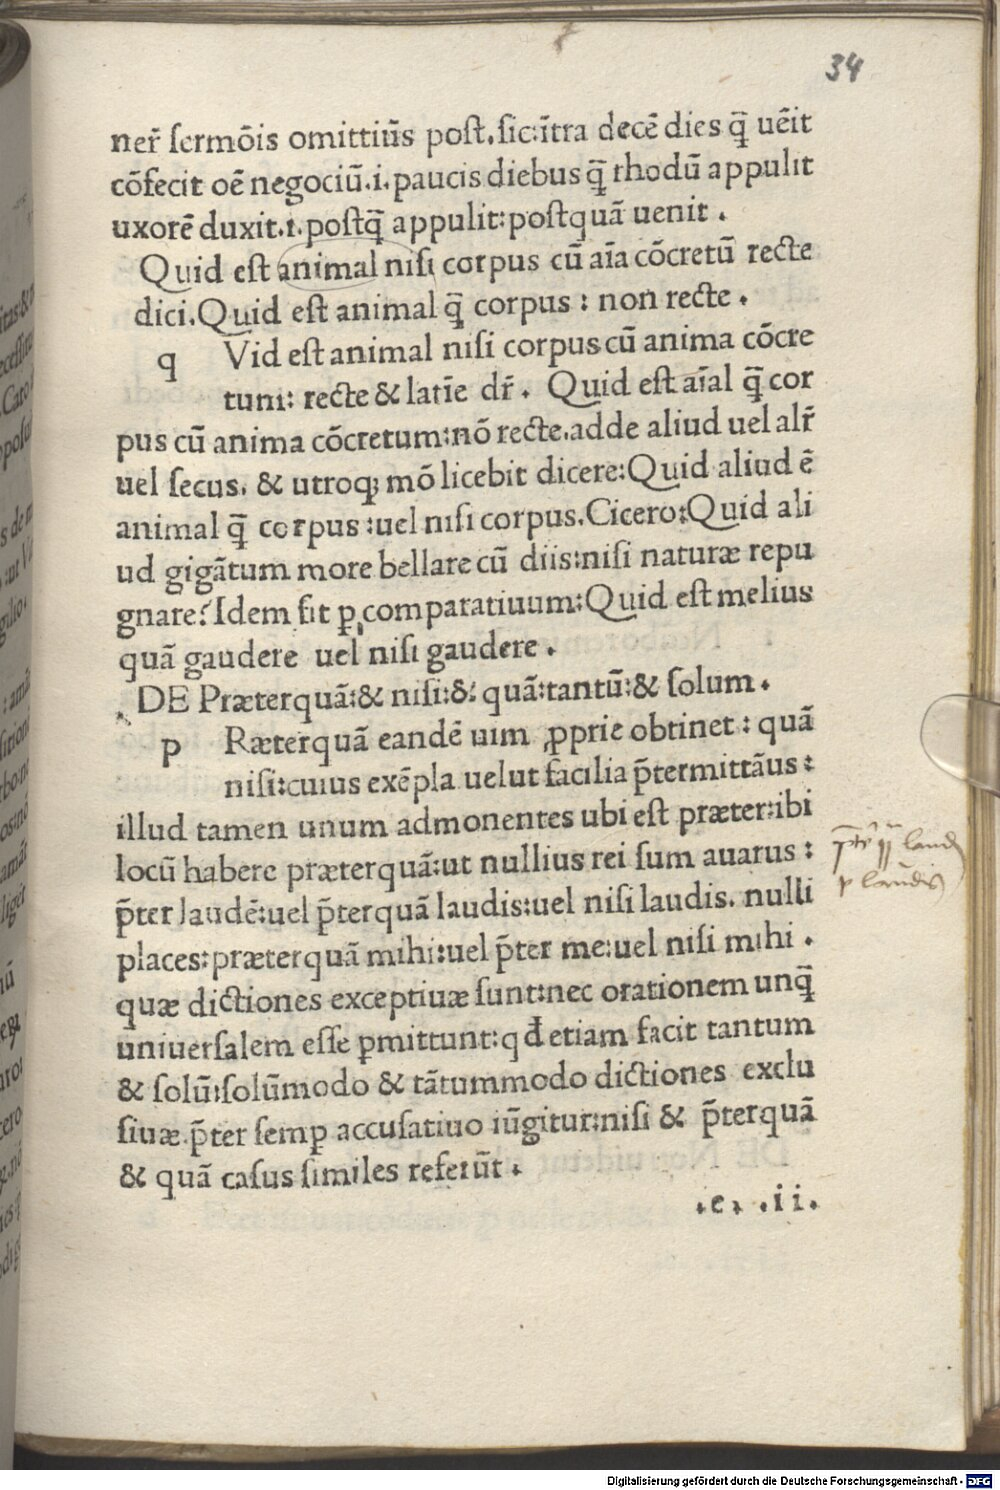 34
ner̃ ſermõis omittiũs poſt.ſic:ĩtra decẽ dies q̃ uẽit
cõfecit oẽ negociũ.i.paucis diebus q̃ rhodũ appulit
uxorẽ duxit.i.poſtq̃ appulit:poſtquã uenit .
Quid eſt animal niſi corpus cũ aĩa cõcretũ recte
dici.Quid eſt animal q̃ corpus : non recte .
q Vid eſt animal niſi corpus cũ anima cõcre
tum: recte & latĩe dr̃ . Quid eſt aĩal q̃ cor
pus cũ anima cõcretum:nõ recte.adde aliud uel alr̃
uel ſecus. & utroq; mõ licebit dicere:Quid aliud ẽ
animal q̃ corpus :uel niſi corpus.Cicero:Quid ali
ud gigãtum more bellare cũ diis:niſi naturæ repu
gnare?Idem fit ꝑ comparatiuum:Quid eſt melius
quã gaudere uel niſi gaudere .
DE Præterquã:& niſi:& quã:tantũ:& ſolum .
p Ræterquã eandẽ uim ꝓprie obtinet : quã
niſi:cuius exẽpla uelut facilia p̃termittãus :
illud tamen unum admonentes ubi eſt præter:ibi
locũ habere præterquã:ut nullius rei ſum auarus :
p̃ter laudẽ:uel p̃terquã laudis:uel niſi laudis. nulli
places:præterquã mihi:uel p̃ter me:uel niſi mihi .
quæ dictiones exceptiuæ ſunt:nec orationem unq̃
uniuerſalem eſſe ꝑmittunt:q đ etiam facit tantum
& ſolũ:ſolũmodo & tãtummodo dictiones exclu
ſiuæ.p̃ter ſemꝑ accuſatiuo iũgitur:niſi & p̃terquã
& quã caſus ſimiles referũt .
.e. .ii.
Digitalisierung gefördert durch die Deutsche Forschungsgemeinschaft - DFG